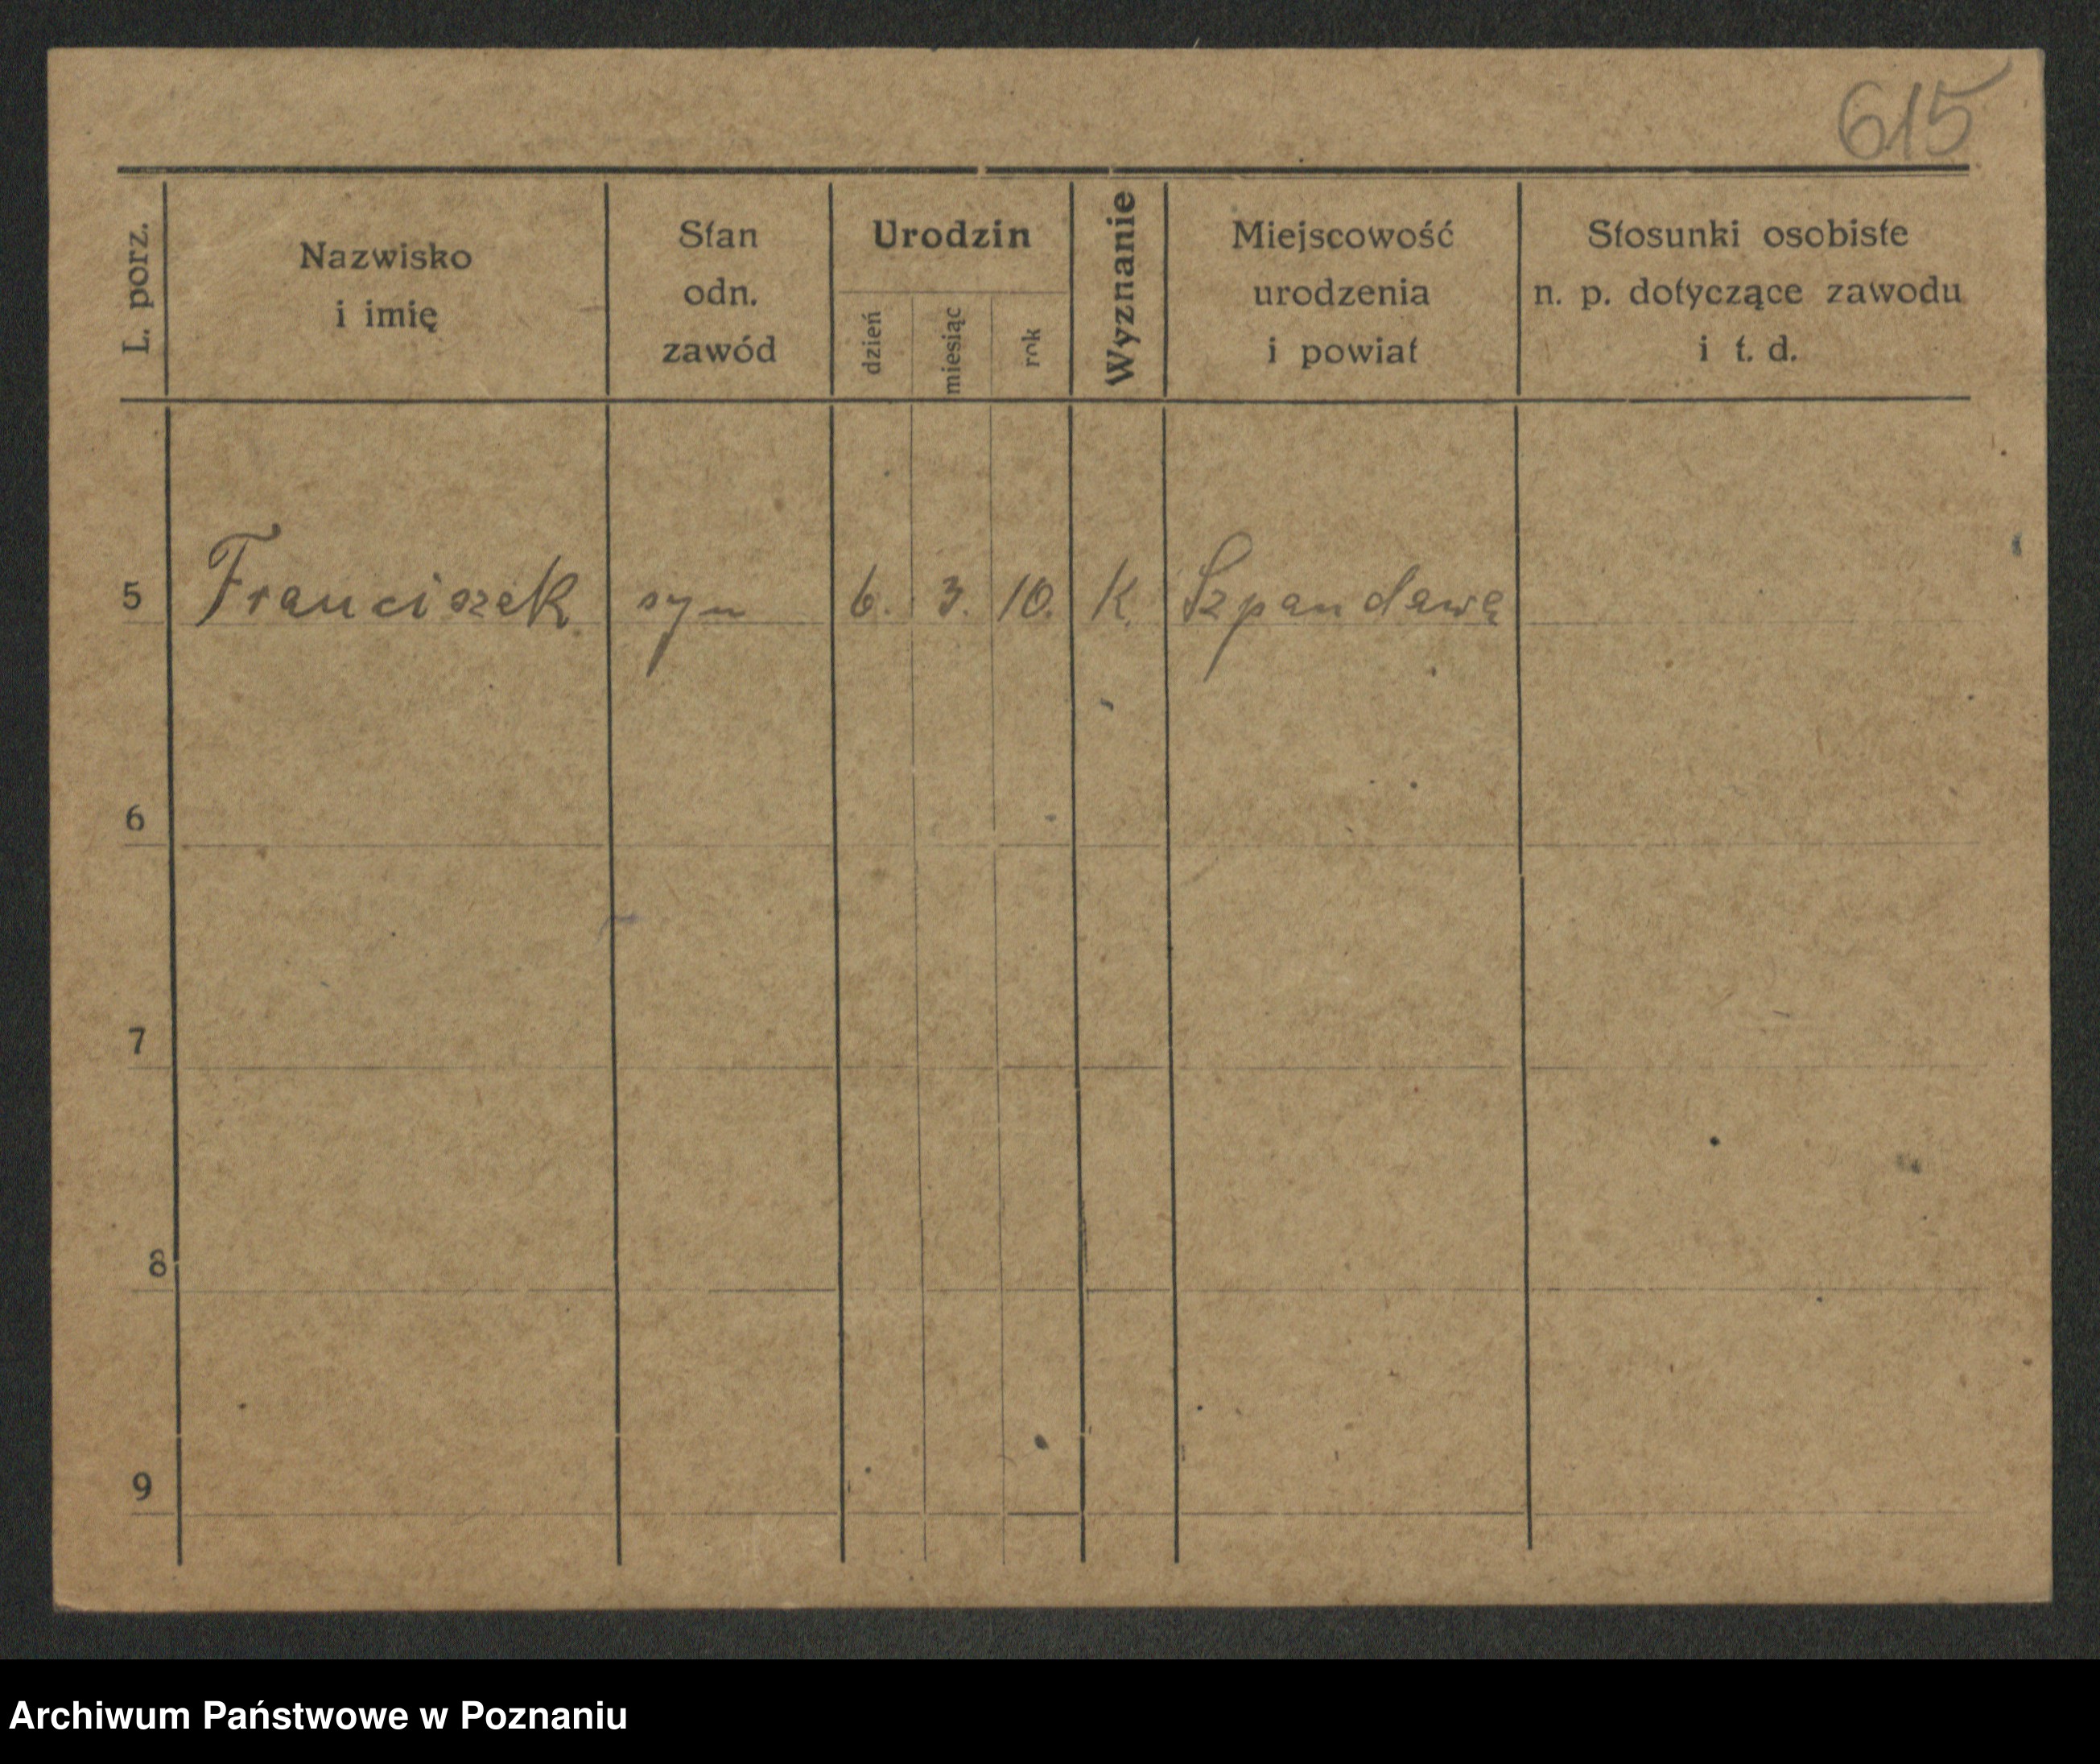 615
L. porz.
Nazwisko
i imię
Stan
odn.
zawód
Urodzin
dzień
miesiąc
rok
Wyznanie
Miejscowość
urodzenia
i powiat
Stosunki osobiste
n. p. dotyczące zawodu
i t. d.
5 Franciszek syn 6. 3. 10. K. Szpandawa
6
7
8
9
Archiwum Państwowe w Poznaniu